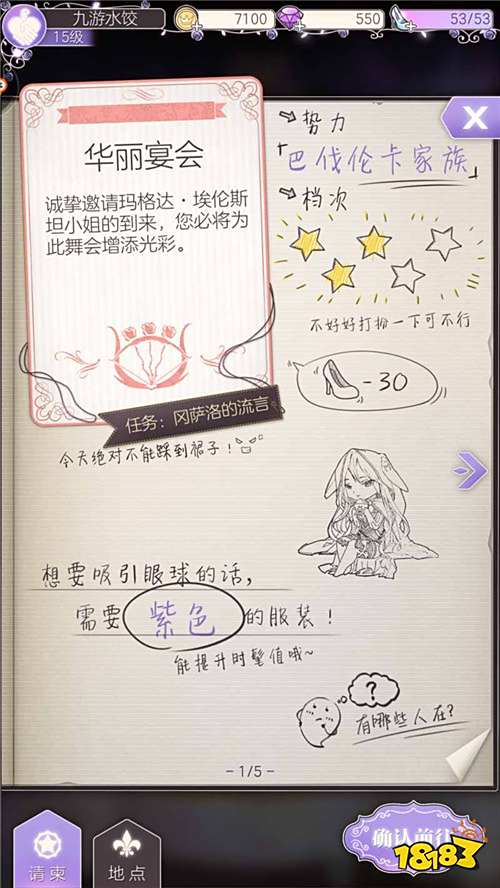 九游水饺
15级
7100
550
53/53
华丽宴会
诚挚邀请玛格达·埃伦斯
坦小姐的到来，您必将为
此舞会增添光彩。
任务：冈萨洛的流言
今天绝对不能踩到裙子！
势力
「巴伐伦卡家族」
档次
不好好打扮一下可不行
-30
想要吸引眼球的话，
需要紫色的服装！
能提升时髦值哦~
?
有哪些人在?
-1/5-
请柬
地点
确认前往
18183